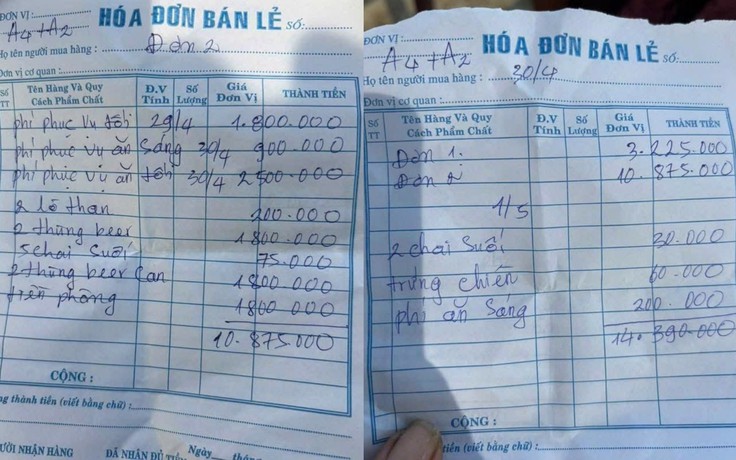 ĐƠN VỊ:
A4+A2
HÓA ĐƠN BÁN LẺ SỐ:
Họ tên người mua hàng : Đơn 2
Đơn vị cơ quan :
Số TT Tên Hàng Và Quy Cách Phẩm Chất Đ.V Tính Số Lượng Giá Đơn Vị THÀNH TIỀN
phí phục vụ tối 29/4 1.800.000
phí phục vụ ăn sáng 30/4 900.000
phí phục vụ ăn tối 30/4 2500.000
2 lò than 200.000
2 thùng beer 1800.000
5 chai suối 75.000
2 thùng beer can 1800.000
tiền phòng 1800.000
10.875.000
CỘNG :
ng thành tiền (viết bằng chữ) :
ƯỜI NHẬN HÀNG ĐÃ NHẬN ĐỦ Ngày
ĐƠN VỊ:
A4+A2
HÓA ĐƠN BÁN LẺ SỐ:
Họ tên người mua hàng : 30/4
Đơn vị cơ quan :
Số TT Tên Hàng Và Quy Cách Phẩm Chất Đ.V Tính Số Lượng Giá Đơn Vị THÀNH TIỀN
Đơn 1: 3.225.000
Đơn 2 10.875.000
1/5
2 chai suối 30.000
trứng chiên 60.000
phí ăn sáng 200.000
14.390.000
CỘNG :
tiền (viết bằng chữ) :